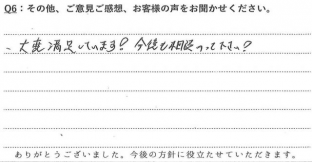 Q6:その他、ご意見ご感想、お客様の声をお聞かせください。
大変満足しています? 今後も相談のって下さい?
ありがとうございました。今後の方針に役立たせていただきます。